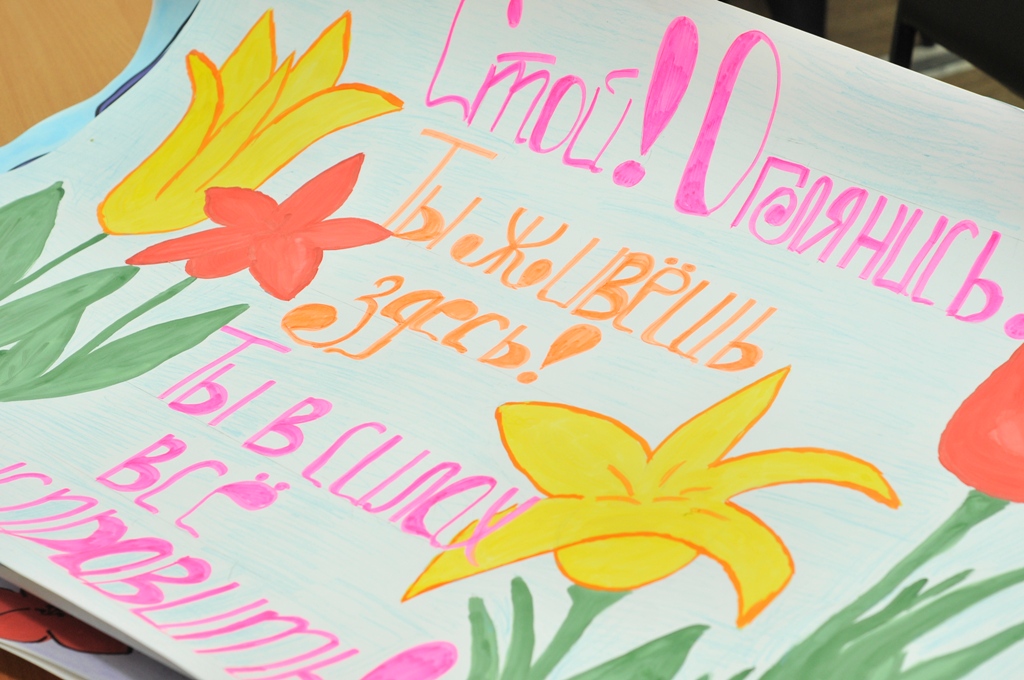 Стой! Оглянись.
Ты живёшь
здесь!
Ты в силах
всё
исправить!